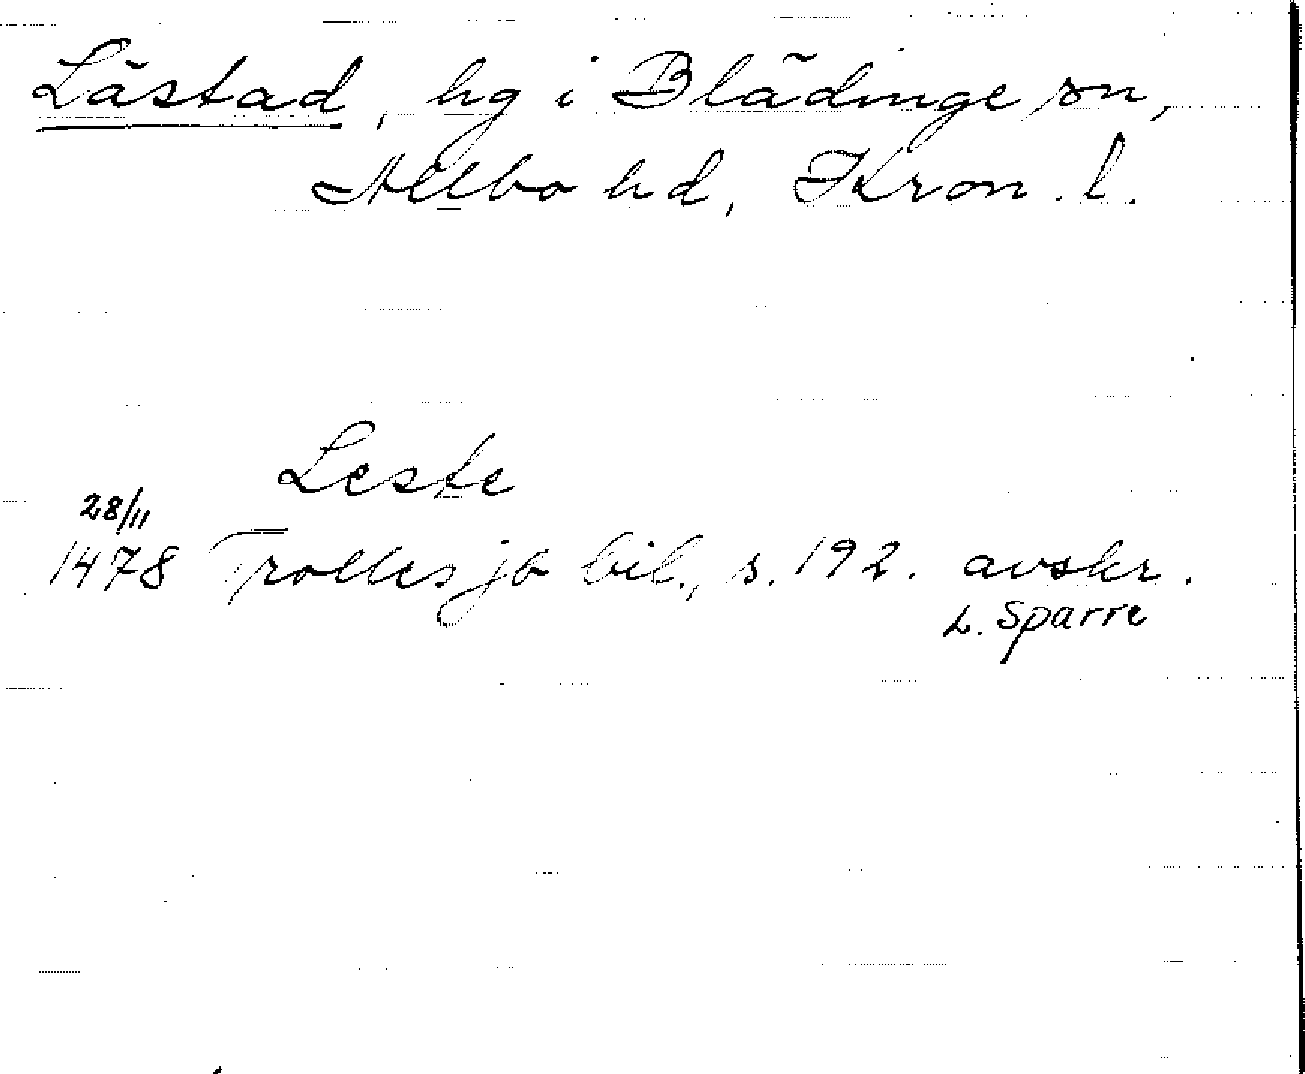 Lästad, hg i Blädinge sn,
Allbo hd, Kron. l.
Leste
28/11
1478 Trolles jb bil., s. 192. avskr.
L. Sparre